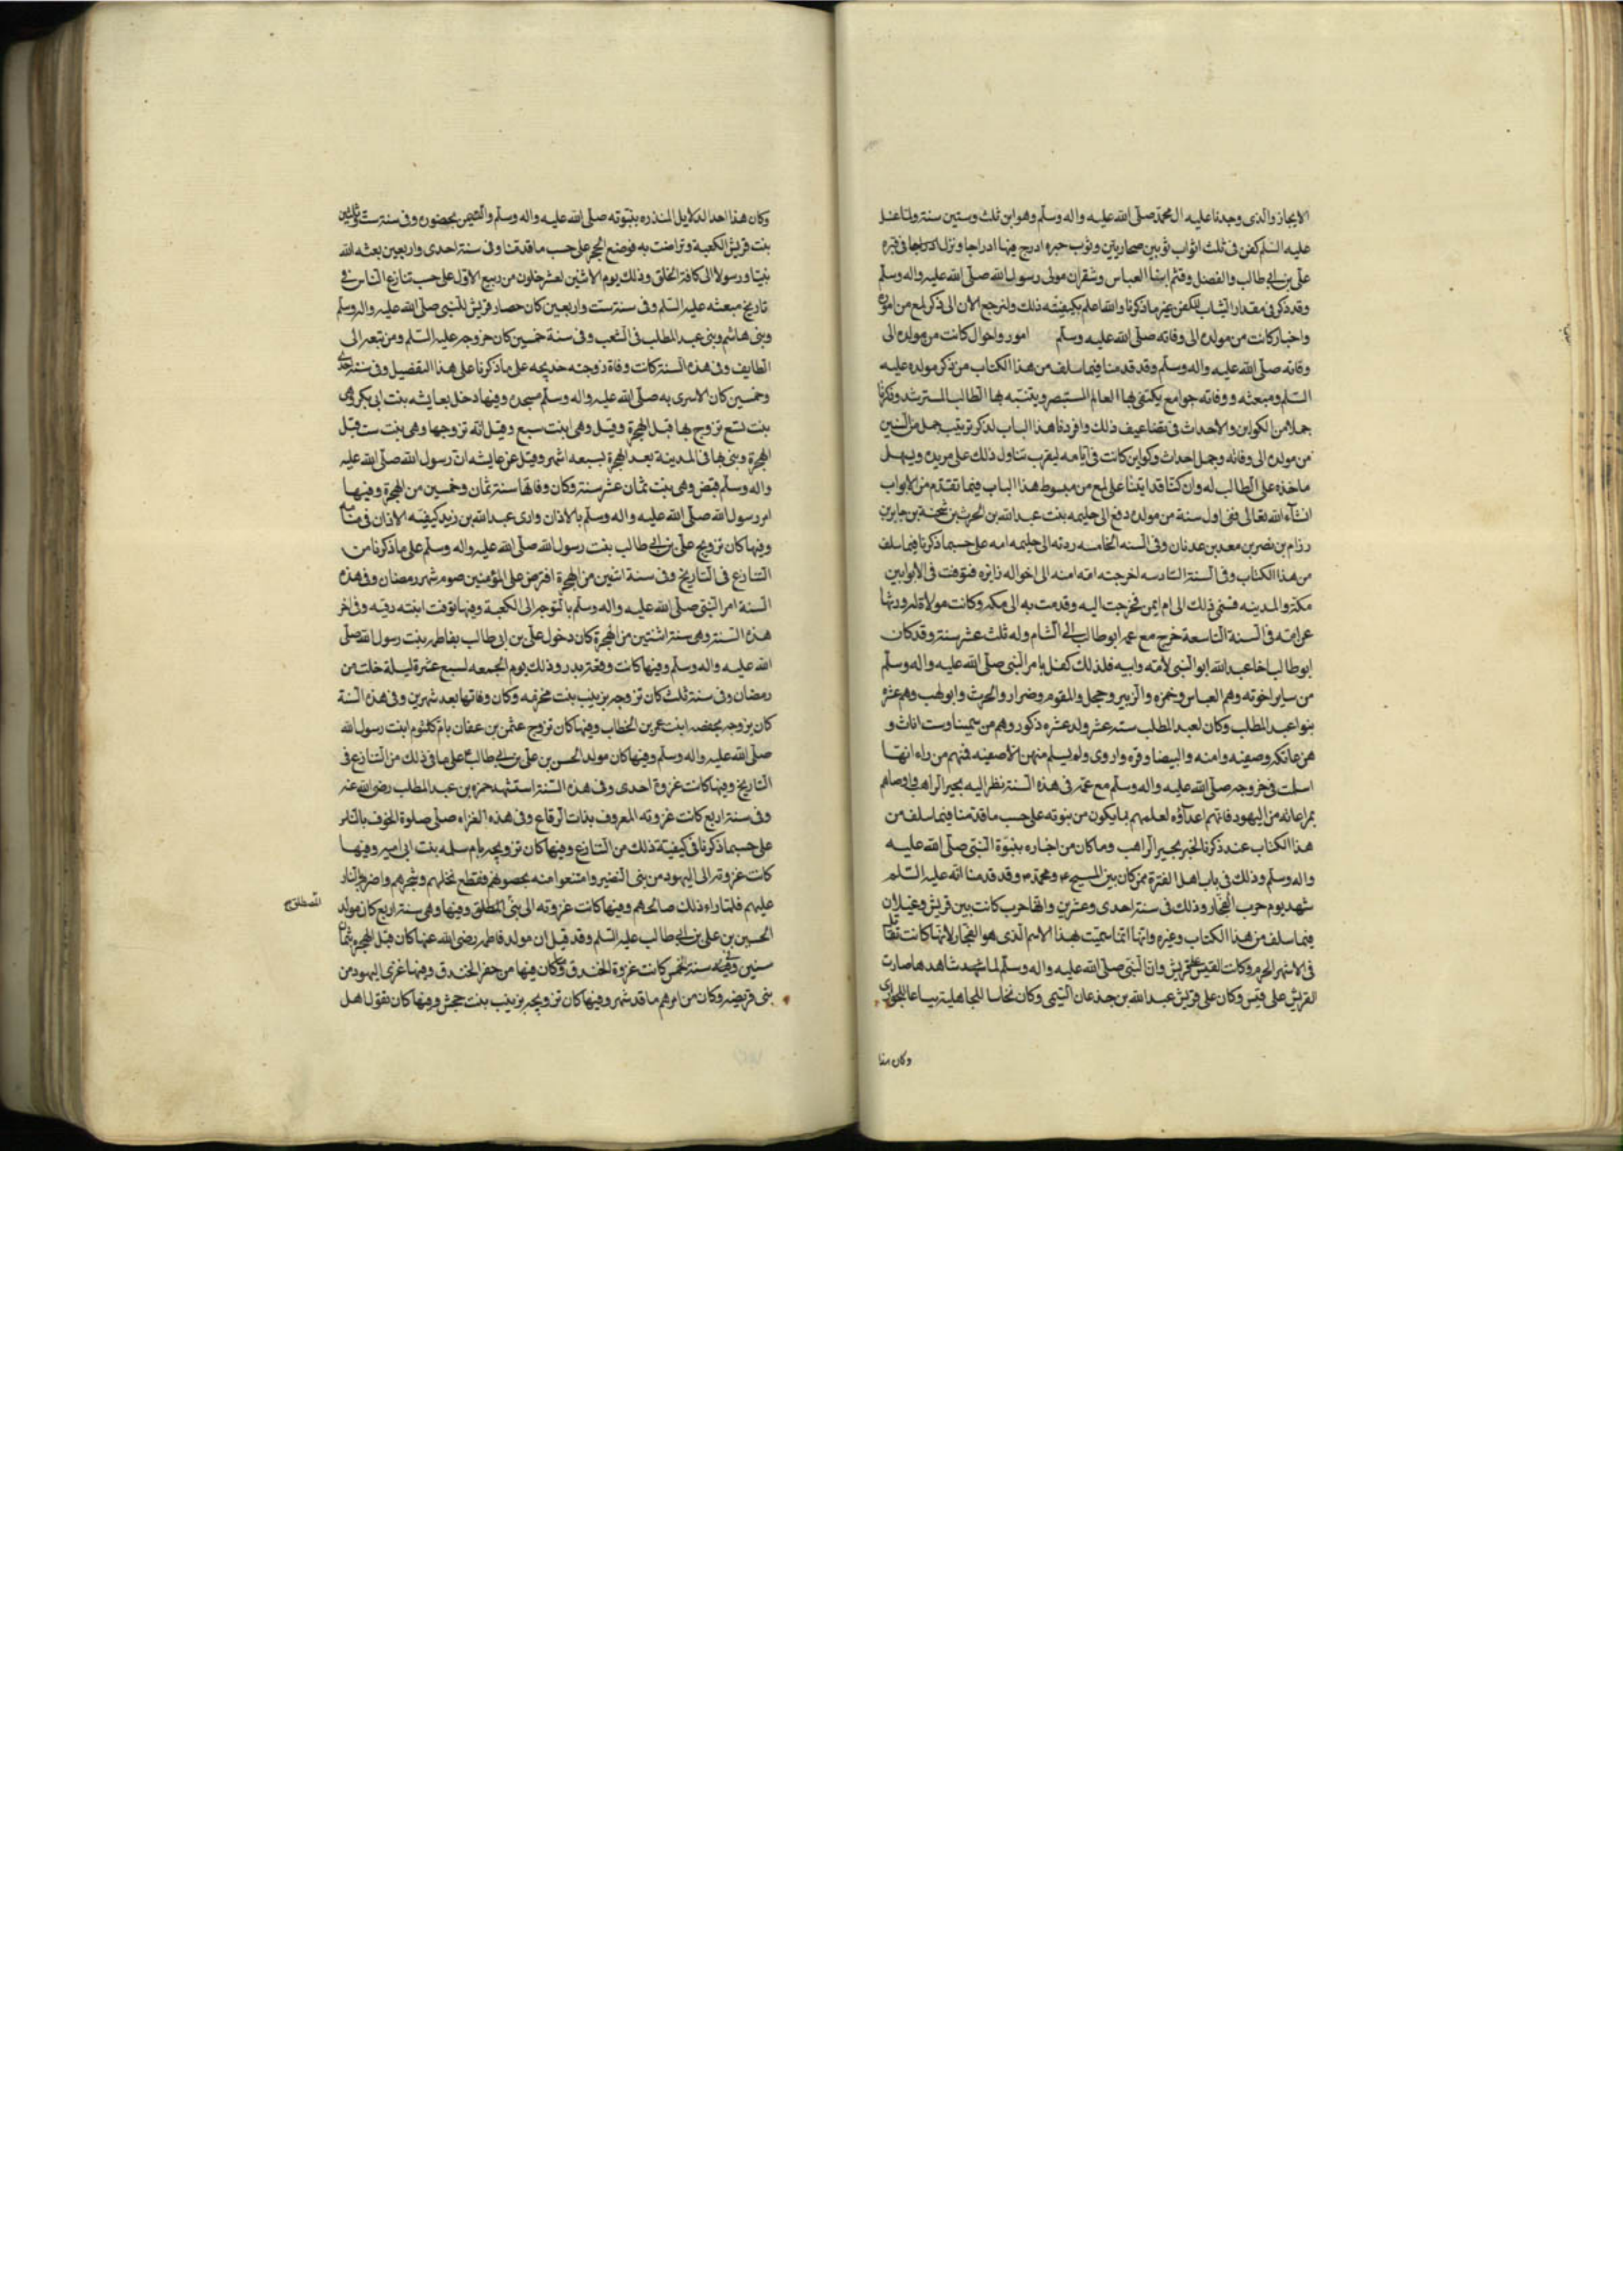 الايجاز والذى وجدنا عليه ال محمد صلى الله عليه واله وسلم وهو ابن ثلث وستين سنة ولما غسل
عليه السلم كفن فى ثلث اثواب ثوبين صحاريين وثوب حبره ادرج فيها ادراجا ونزل فى قبره
على بن ابى طالب والفضل وقثم ابنا العباس وشقران مولى رسول الله صلى الله عليه واله وسلم
وقد ذكر فى مقدار الثياب للكفن غير ما ذكرنا والله اعلم بكيفيته ذلك ولنرجع الان الى ذكر لمع من اموره
واخبار كانت من مولده الى وفاته صلى الله عليه وسلم امور واحوال كانت من مولده الى
وفاته صلى الله عليه واله وسلم وقد قدمنا فيما سلف من هذا الكتاب من ذكر مولده عليه
السلم ومبعثه ووفاته جوامع يكتفى بها العالم المستبصر ويتنبه بها الطالب المسترشد وذكرنا
جملا من الكواين والاحداث فى تضاعيف ذلك وافردنا هذا الباب لذكر ترتيب جمل من السنين
من مولده الى وفاته وجمل احداث وكواين كانت فى ايامه ليقرب تناول ذلك على مريده ويسهل
ماخذه على الطالب له وان كنا قد اتينا على لمع من مبسوط هذا الباب فيما تقدم من الابواب
انشآء الله تعالى ففى اول سنة من مولده دفع الى حليمه بنت عبد الله بن الحرث بن شجنة بن جابر بن
رزام بن نصر بن معد بن عدنان وفى السنه الخامسه ردته الى حليمه امه على حسبما ذكرنا فيما سلف
من هذا الكتاب وفى السنة السادسه اخرجته امه امنه الى اخواله زايره فتوفت فى الابوا بين
مكة والمدينه فنمى ذلك الى ام ايمن فخرجت اليه وقدمت به الى مكه وكانت مولاة له ورثها
عن امه فى السنة التاسعة خرج مع عمه ابو طالب الى الشام وله ثلث عشر سنة وقد كان
ابو طالب اخا عبد الله ابو النبى لامه وابيه فلذلك كفل بامر النبى صلى الله عليه واله وسلم
من ساير اخوته وهم العباس وحمزه والزبير وحجل والمقوم وضرار والحرث وابو لهب وهم عشره
بنوا عبد المطلب وكان لعبد المطلب سته عشر ولد عشره ذكور وهم من سمينا وست اناث و
هن عاتكه وصفيه وامنه والبيضا وبره واروى ولم يسلم منهن الا صفيه فمنهم من راء انها
اسلمت فى خروجه صلى الله عليه واله وسلم مع عمه فى هذه السنة نظر اليه بحيرا الراهب واوصاهم
بمراعاته من اليهود فانهم اعدآؤه لعلمهم بما يكون من نبوته على حسب ما قدمنا فيما سلف من
هذا الكتاب عند ذكرنا لخبر بحيرا الراهب وما كان من اخباره بنبوة النبى صلى الله عليه
واله وسلم وذلك فى باب اهل الفترة ممن كان بين المسيح ع ومحمد ص وقد قدمنا انه عليه السلم
شهد يوم حرب الفجار وذلك فى سنة احدى وعشرين وانها حرب كانت بين قريش وغيلان
فيما سلف من هذا الكتاب وغيره وانها انما سميت بهذا الاسم الذى هو الفجار لانها كانت
فى الاشهر الحرم وكانت لقيس على قريش وان النبى صلى الله عليه واله وسلم لما شهد شاهدها صارت
لقريش على قيس وكان على قريش عبد الله بن جذعان التيمى وكان نخاسا للجاهلية بياعا للجوارى
وكان هذا
وكان هذا احد الدلايل المنذره بنبوته صلى الله عليه واله وسلم والتيمن بحضوره وفى سنة ست وثلثين
بنت قريش الكعبة وتراضت به فوضع الحجر على حسب ما قدمنا وفى سنة احدى واربعين بعثه الله
نبيا ورسولا الى كافة الخلق وذلك يوم الاثنين لعشر خلون من ربيع الاول على حسب تنازع الناس فى
تاريخ مبعثه عليه السلم وفى سنة ست واربعين كان حصار قريش للنبى صلى الله عليه واله وسلم
وبنى هاشم وبنى عبد المطلب فى الشعب وفى سنة خمسين كان خروجه عليه السلم ومن تبعه الى
الطايف وفى هذه السنة كانت وفاة زوجته خديجه على ما ذكرنا على هذا التفضيل وفى سنة احدى
وخمسين كان الاسرى به صلى الله عليه واله وسلم وفيها دخل بعايشه بنت ابى بكر وهى
بنت تسع تزوج بها قبل الهجرة وقيل وهى ابنت سبع وقيل انه تزوجها وهى بنت ست قبل
الهجرة وبنى بها فى المدينة بعد الهجرة بسبعه اشهر وقيل عن عايشه ان رسول الله صلى الله عليه
واله وسلم قبض وهى بنت ثمان عشر سنة وكان وفاتها سنة ثمان وخمسين من الهجرة وفيها
امر رسول الله صلى الله عليه واله وسلم بالاذان وارى عبد الله بن زيد كيفيه الاذان فى منامه
وفيها كان تزويج على بن ابى طالب بنت رسول الله صلى الله عليه واله وسلم على ما ذكرنا من
التنازع فى التاريخ وفى سنة اثنين من الهجرة افترض على المؤمنين صوم شهر رمضان وفى هذه
السنة امر النبى صلى الله عليه واله وسلم بالتوجه الى الكعبة وفيها توفت ابنته رقيه وفى اخر
هذه السنة وهى سنة اثنتين من الهجرة كان دخول على بن ابى طالب بفاطمه بنت رسول الله صلى
الله عليه واله وسلم وفيها كانت وقعة بدر وذلك يوم الجمعه لسبع عشرة ليلة خلت من
رمضان وفى سنة ثلث كان تزوجه بزينب بنت وكان وفاتها بعد شهرين وفى هذه السنة
كان تزوجه بحفصه ابنت عمر بن الخطاب وفيها كان تزوج عثمن بن عفان بام كلثوم ابنت رسول الله
صلى الله عليه واله وسلم وفيها كان مولد الحسن بن على بن ابى طالب ع على ما فى ذلك من التنازع فى
التاريخ وفيها كانت غزوة احدى وفى هذه السنة استشهد حمزه بن عبد المطلب رضى الله عنه
وفى سنة اربع كانت غزوته المعروف بذات الرقاع وفى هذه الغزاه صلى صلوة الخوف بالناس
على حسبما ذكرنا فى كيفية ذلك من التنازع وفيها كان تزويجه بام سلمه بنت ابى اميه وفيها
كانت غزوته الى اليهود من بنى النضير وامتنعوا منه بحصونهم فقطع نخلهم وشجرهم واضرم النار
عليهم فلما راءو ذلك صالحهم وفيها كانت غزوته الى بنى المطلق وفيها وهى سنة اربع كان مولد
الحسين بن على بن ابى طالب عليه السلم وقد قيل ان مولد فاطمه رضى الله عنها كان قبل الهجرة بثمان
سنين وفى سنة خمس كانت غزوة الخندق وكان فيها من حفر الخندق وفيها غزى اليهود من
بنى قريضه وكان من امرهم ما قد شهر وفيها كان تزويجه بزينب بنت جحش وفيها كان تقول اهل